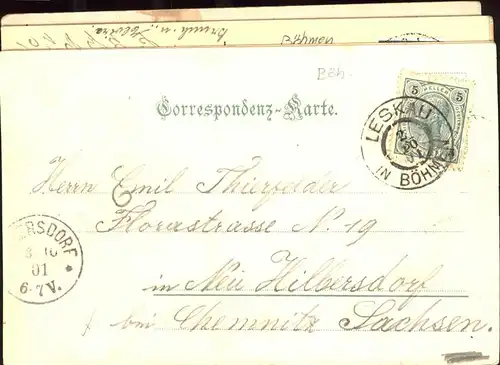 Böhmen
Böh.
Correspondenz-Karte.
5 HELLER 5
LESKAU
IN BÖHMEN
Herrn Emil Thierfelder
Florastrasse No. 19
in Neu Hilbersdorf
bei Chemnitz Sachsen.
ERSDORF
01
6-7V.